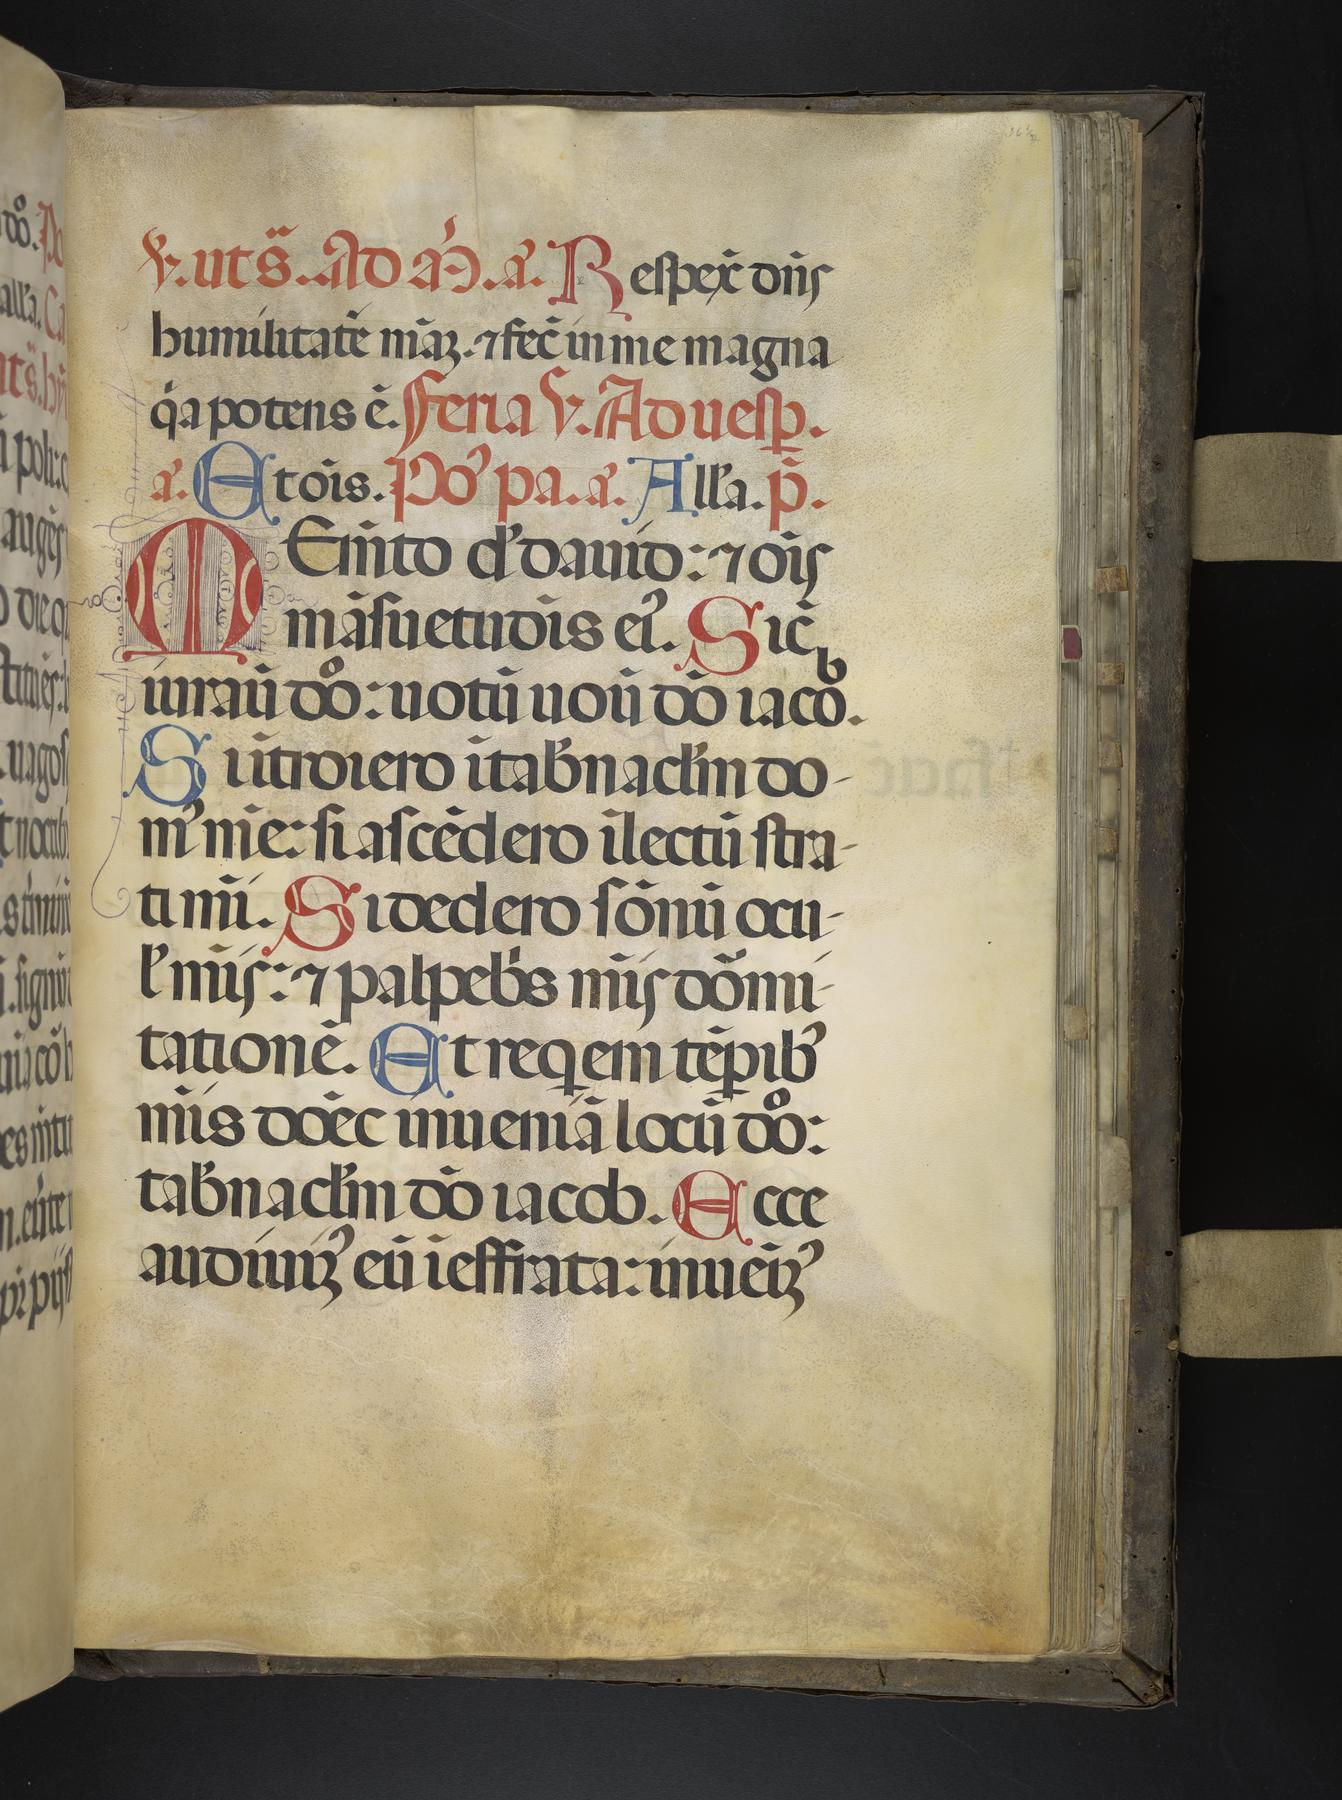 v. ut s̄. Ad m̄. a᷒. Respex̄ dn̄s
humilitatē mēaꝫ. ⁊ fec̄ in me magna
q̇a potens ē. Feria v. Ad uesp̄.
a᷒. Et oīs. Po᷒ pa. a᷒. All'a. p̄.
MEm̄to d' dauid: ⁊ oīs
māsuetudīs ei᷒. Sic̄
iurauī dōo: uotū uouī dō iacōb.
Si ītroiero ī tab'nacl'm do-
m᷒ mē: si ascēdero ī lectū stra-
ti mī. Si dedero sōnū ocu-
l' mīs: ⁊ palpeb's mīs dōmi-
tationē. Et reqem tēpib᷒
mīs dōec inueniā locū dōo:
tab'nacl'm dō iacob. Ecce
audiuim᷒ eū ī effrata: inueīm᷒